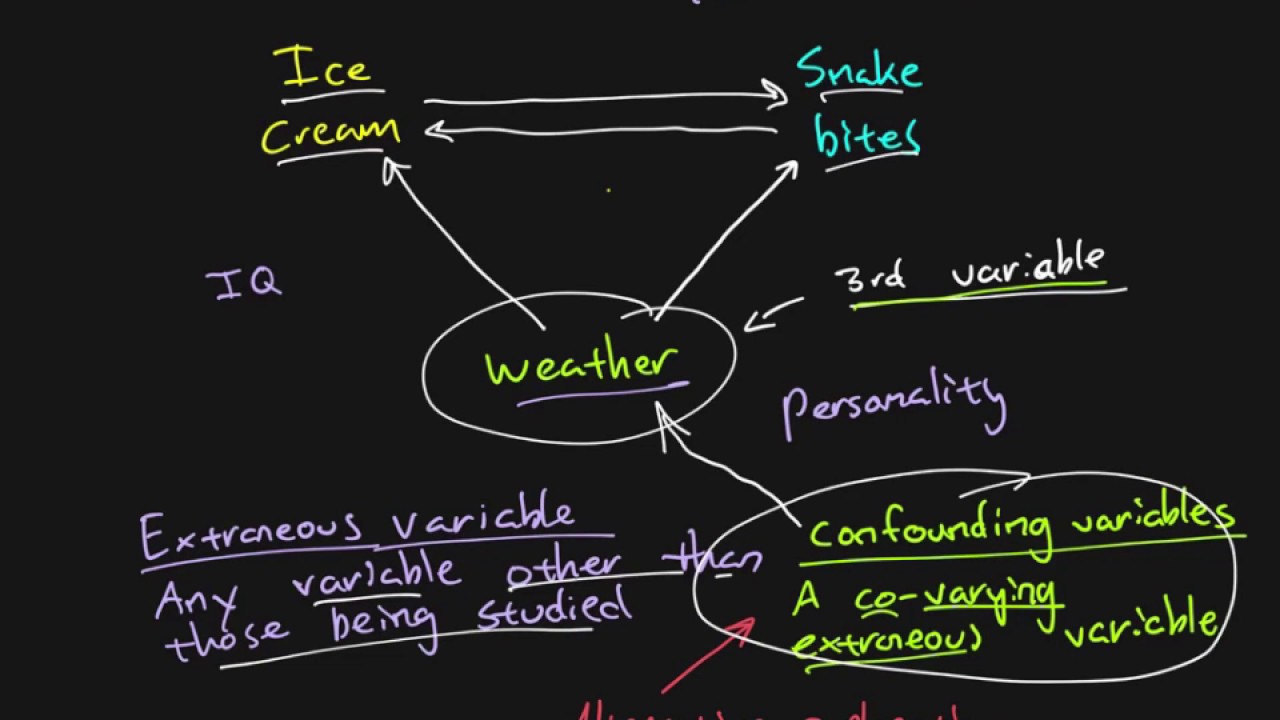 Ice
Cream
Snake
bites
IQ
3rd variable
Weather
Personality
Extraneous variable
Any variable other than
those being studied
Confounding variables
A co-varying
extraneous variable